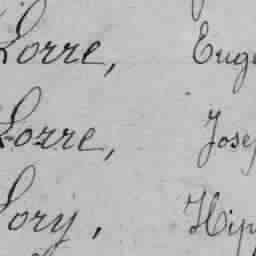 Lorre, Eug
Lorre, Jose
Lory, Hip